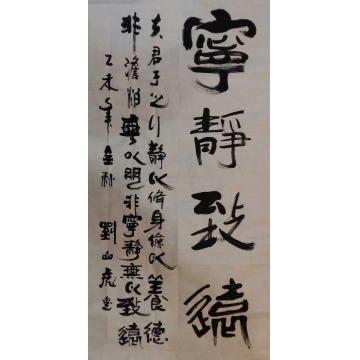 寧靜致遠
夫君子之行靜以脩身儉以養德
非澹泊無以明非寧靜無以致遠
乙未年金秋 劉山虎書